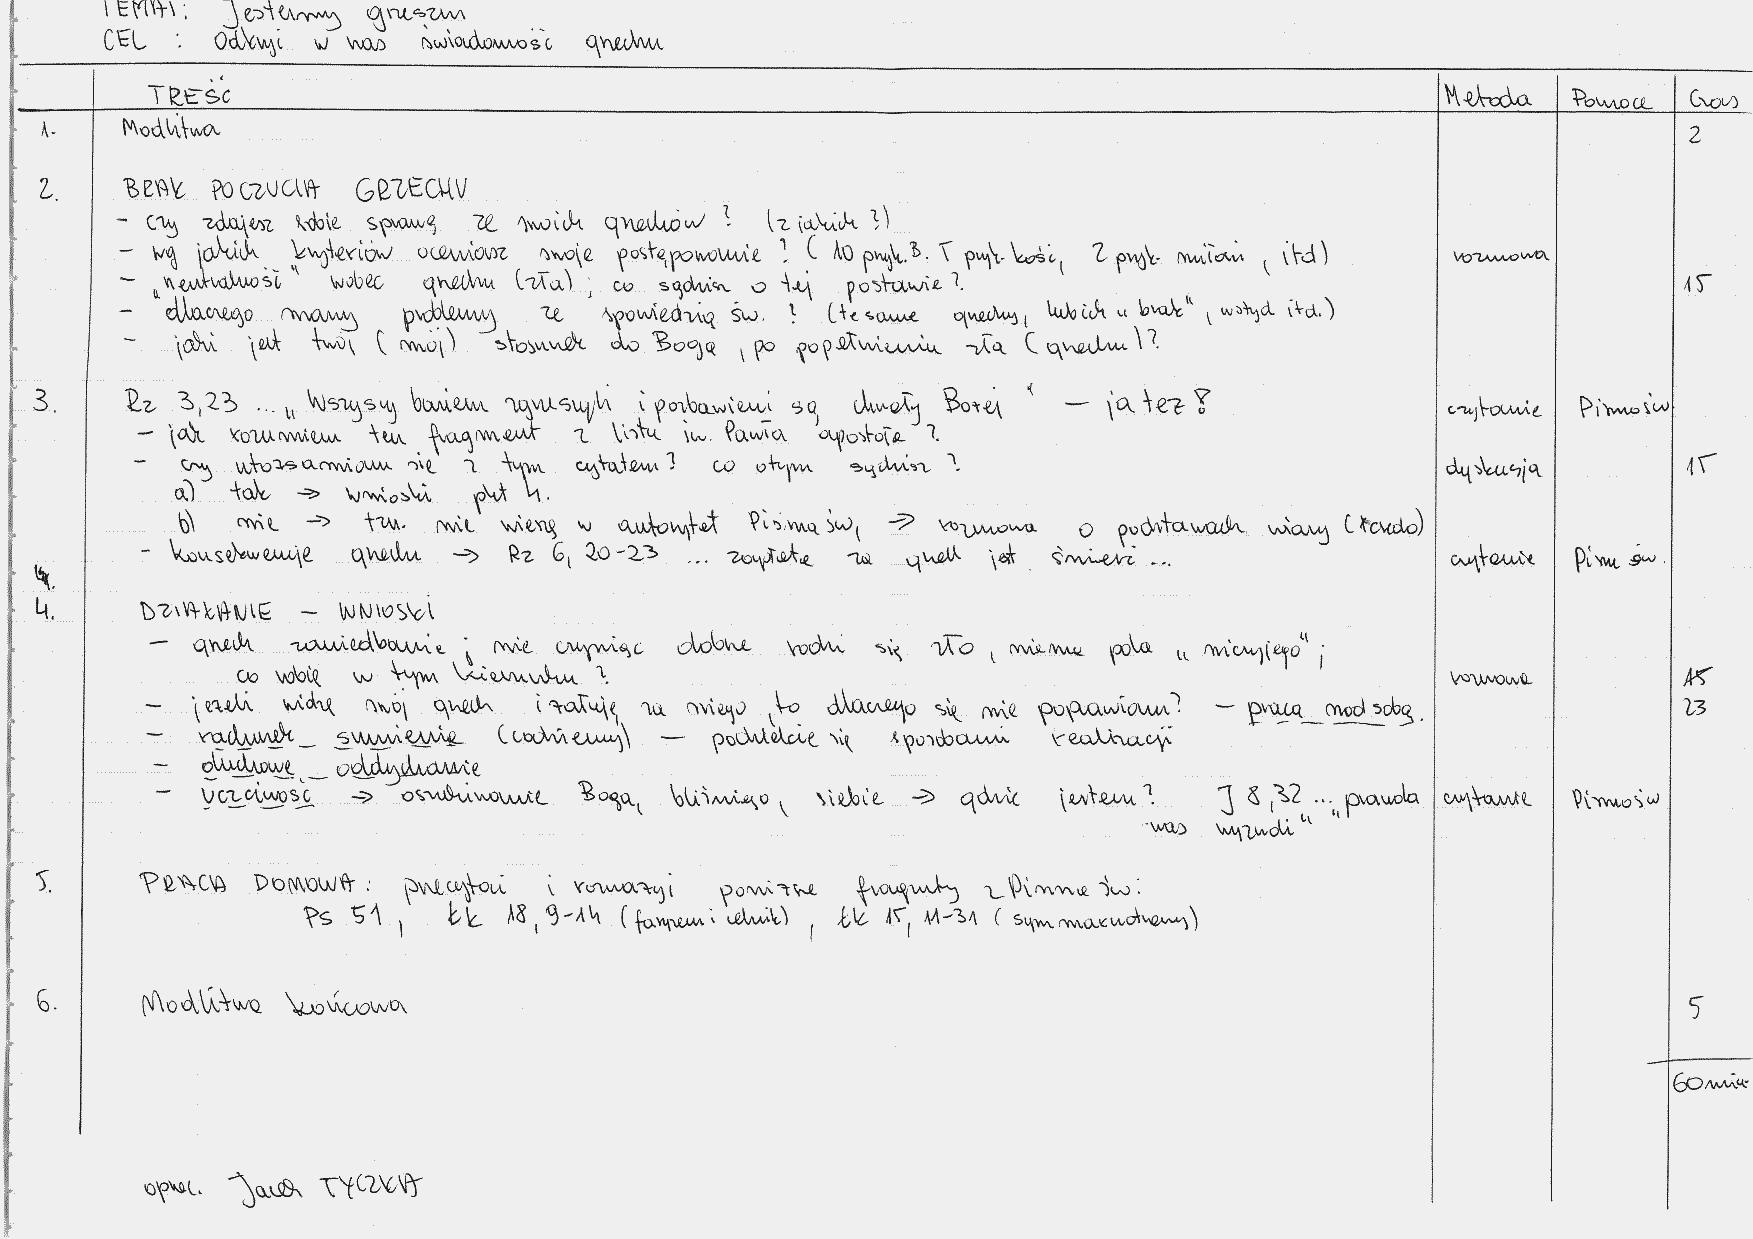 TEMAT: Jesteśmy grzeszni
CEL : Odkryć w nas świadomość grzechu
TREŚĆ Metoda Pomoce Czas
1. Modlitwa 2
2. BRAK POCZUCIA GRZECHU
- czy zdajesz sobie sprawę ze swoich grzechów ? (z jakich ?)
- wg jakich kryteriów oceniasz swoje postępowanie ? ( 10 przyk. B. 5 przyk. kość, 2 przyk. miłości , itd) rozmowa
- „neutralność" wobec grzechu (zła), co sądzisz o tej postawie ? 15
- dlaczego mamy problemy ze spowiedzią św. ? (te same grzechy, lub ich „brak", wstyd itd.)
- jaki jest twój (mój) stosunek do Boga, po popełnieniu zła (grzechu) ?
3. Rz 3,23 ... „Wszyscy bowiem zgrzeszyli i pozbawieni są chwały Bożej" — ja też ? czytanie Pismo św
- jak rozumiem ten fragment z listu św. Pawła apostoła ?
- czy utożsamiam się z tym cytatem ? co o tym sądzisz ? dyskusja 15
a) tak → wnioski pkt 4.
b) nie → tzn. nie wierzę w autorytet Pisma św, → rozmowa o podstawach wiary (kredo)
- konsekwencje grzechu → Rz 6, 20-23 ... zapłatą za grzech jest śmierć ... czytanie Pismo św.
4.
4. DZIAŁANIE — WNIOSKI
- grzech zaniedbania ; nie czyniąc dobra rodzi się zło , niema pola „niczyjego" ;
co robię w tym kierunku ? rozmowa 15
- jeżeli widzę swój grzech i żałuję za niego , to dlaczego się nie poprawiam ? — praca nad sobą. 23
- rachunek sumienia (codzienny) — podzielcie się sposobami realizacji
- duchowe oddychanie
- uczciwość → oszukiwanie Boga, bliźniego, siebie → gdzie jestem ? J 8,32 ... „prawda czytanie Pismo św
was wyzwoli"
5. PRACA DOMOWA : przeczytać i rozważyć poniższe fragmenty z Pisma św :
Ps 51 , Łk 18, 9-14 (faryzeusz i celnik) , Łk 15, 11-31 ( syn marnotrawny)
6. Modlitwa końcowa 5
60 min
oprac. Jacek TYCZKA